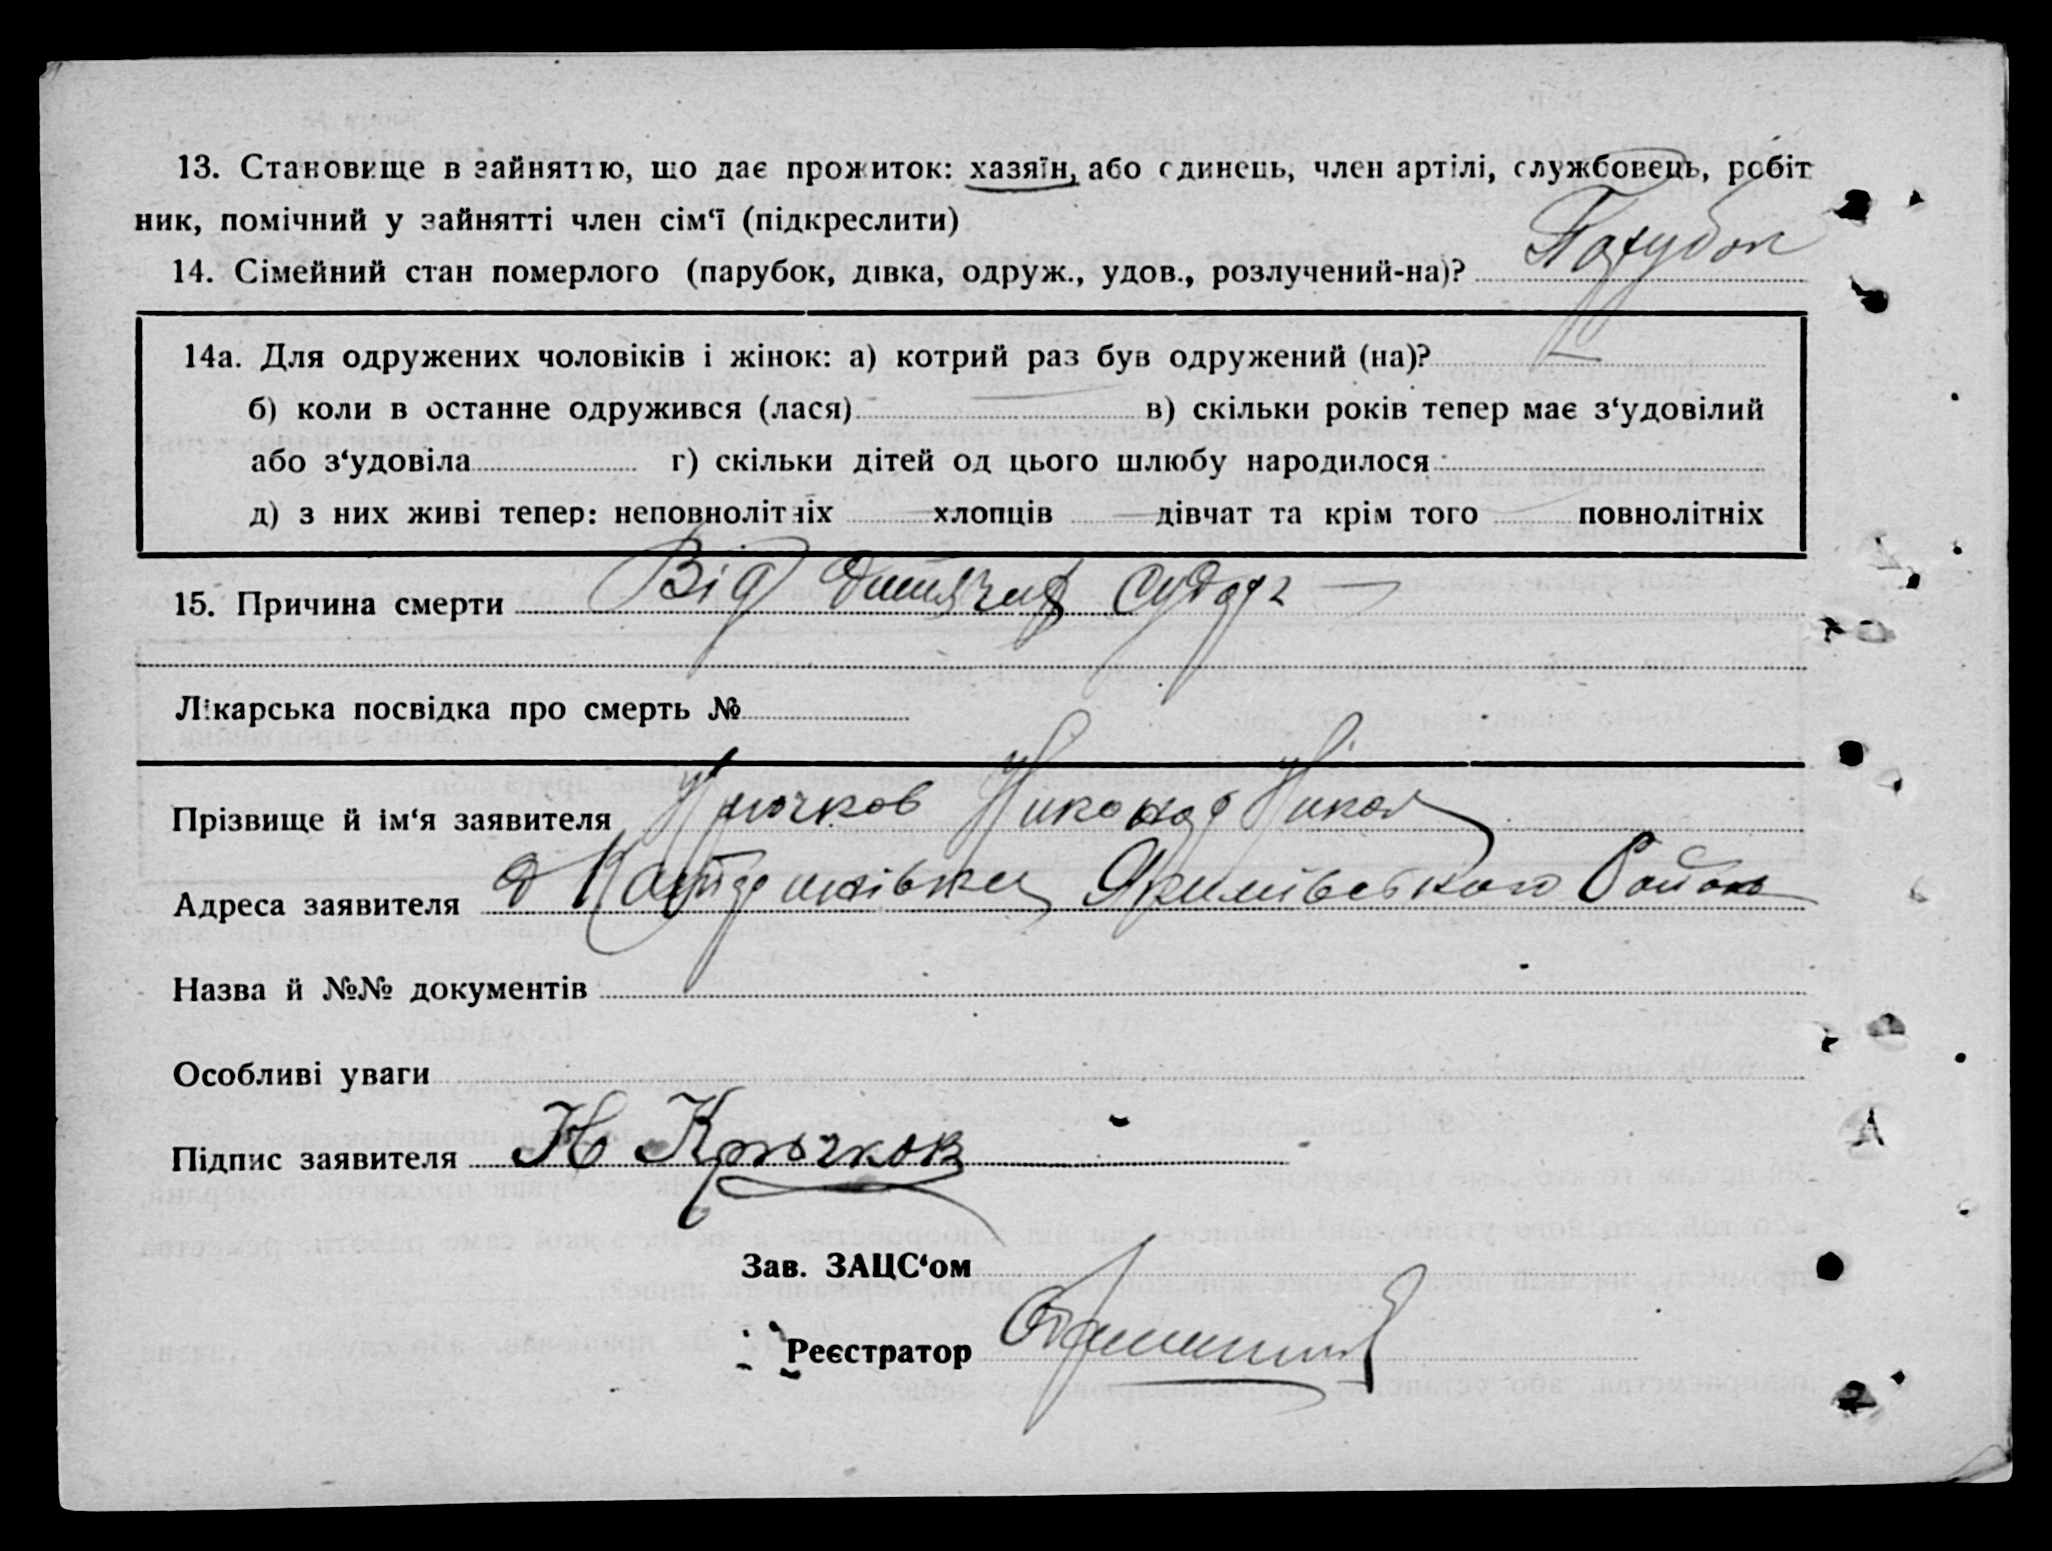 13. Становище в зайняттю, що дає прожиток: хазяїн, або єдинець, член артілі, службовець, робіт
ник, помічний у зайнятті член сім‘ї (підкреслити)
14. Сімейний стан померлого (парубок, дівка, одруж., удов., розлучений-на)? Парубок
14а. Для одружених чоловіків і жінок: а) котрий раз був одружений (на)?
б) коли в останнє одружився (лася) в) скільки років тепер має з‘удовілий
або з‘удовіла г) скільки дітей од цього шлюбу народилося
д) з них живі тепер: неповнолітніх хлопців дівчат та крім того повнолітніх
15. Причина смерти Від дитячих судог
Лікарська посвідка про смерть №
Прізвище й ім‘я заявителя Крючков Никонор Никол
Адреса заявителя Якимівського Району
Назва й №№ документів
Особливі уваги
Підпис заявителя Н Крючков
Зав. ЗАЦС‘ом
Реєстратор